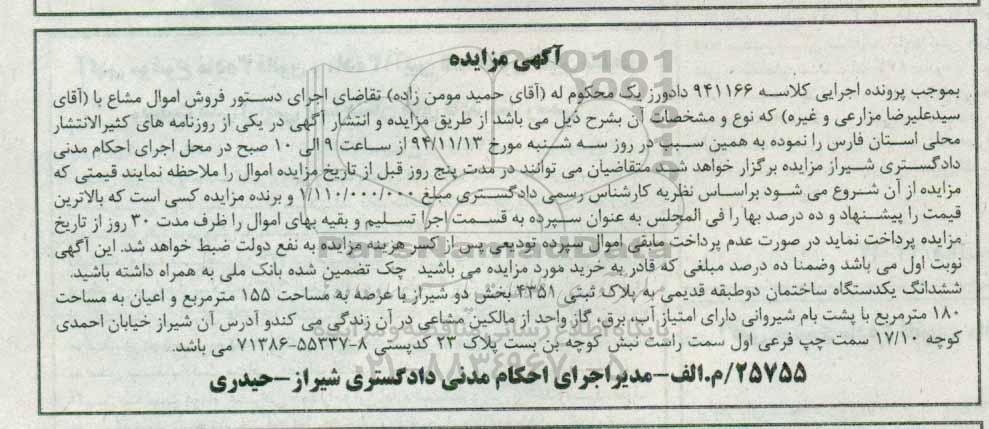 آگهی مزایده
بموجب پرونده اجرایی کلاسه ۹۴۱۱۶۶ دادورز یک محکوم له (آقای حمید مومن زاده) تقاضای اجرای دستور فروش اموال مشاع با (آقای
سیدعلیرضا مزارعی و غیره) که نوع و مشخصات آن بشرح ذیل می باشد از طریق مزایده و انتشار آگهی در یکی از روزنامه های کثیرالانتشار
محلی استان فارس را نموده به همین سبب در روز سه شنبه مورخ ۹۴/۱۱/۱۳ از ساعت ۹ الی ۱۰ صبح در محل اجرای احکام مدنی
دادگستری شیراز مزایده برگزار خواهد شد متقاضیان می توانند در مدت پنج روز قبل از تاریخ مزایده اموال را ملاحظه نمایند قیمتی که
مزایده از آن شروع می شود براساس نظریه کارشناس رسمی دادگستری مبلغ ۱/۱۱۰/۰۰۰/۰۰۰ و برنده مزایده کسی است که بالاترین
قیمت را پیشنهاد و ده درصد بها را فی المجلس به عنوان سپرده به قسمت اجرا تسلیم و بقیه بهای اموال را ظرف مدت ۳۰ روز از تاریخ
مزایده پرداخت نماید در صورت عدم پرداخت مابقی اموال سپرده تودیعی پس از کسر هزینه مزایده به نفع دولت ضبط خواهد شد. این آگهی
نوبت اول می باشد وضمنا ده درصد مبلغی که قادر به خرید مورد مزایده می باشید چک تضمین شده بانک ملی به همراه داشته باشید.
ششدانگ یکدستگاه ساختمان دوطبقه قدیمی به پلاک ثبتی ۴۳۵۱ بخش دو شیراز با عرصه به مساحت ۱۵۵ مترمربع و اعیان به مساحت
۱۸۰ مترمربع با پشت بام شیروانی دارای امتیاز آب، برق، گاز واحد از مالکین مشاعی در آن زندگی می کندو آدرس آن شیراز خیابان احمدی
کوچه ۱۷/۱۰ سمت چپ فرعی اول سمت راست نبش کوچه بن بست پلاک ۲۳ کدپستی ۸-۵۵۳۳۷-۷۱۳۸۶ می باشد.
۲۵۷۵۵/م.الف-مدیراجرای احکام مدنی دادگستری شیراز-حیدری
ParsNamadData
پایگاه اطلاع رسانی مناقصه و مزایده